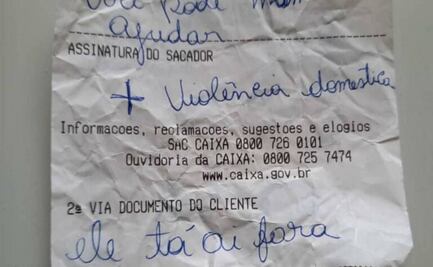 Você Pode mim
ajudar
ASSINATURA DO SACADOR
+ Violência domestica
Informacoes, reclamacoes, sugestoes e elogios
SAC CAIXA 0800 726 0101
Ouvidoria da CAIXA: 0800 725 7474
www.caixa.gov.br
2ª VIA DOCUMENTO DO CLIENTE
ele tá ai fora